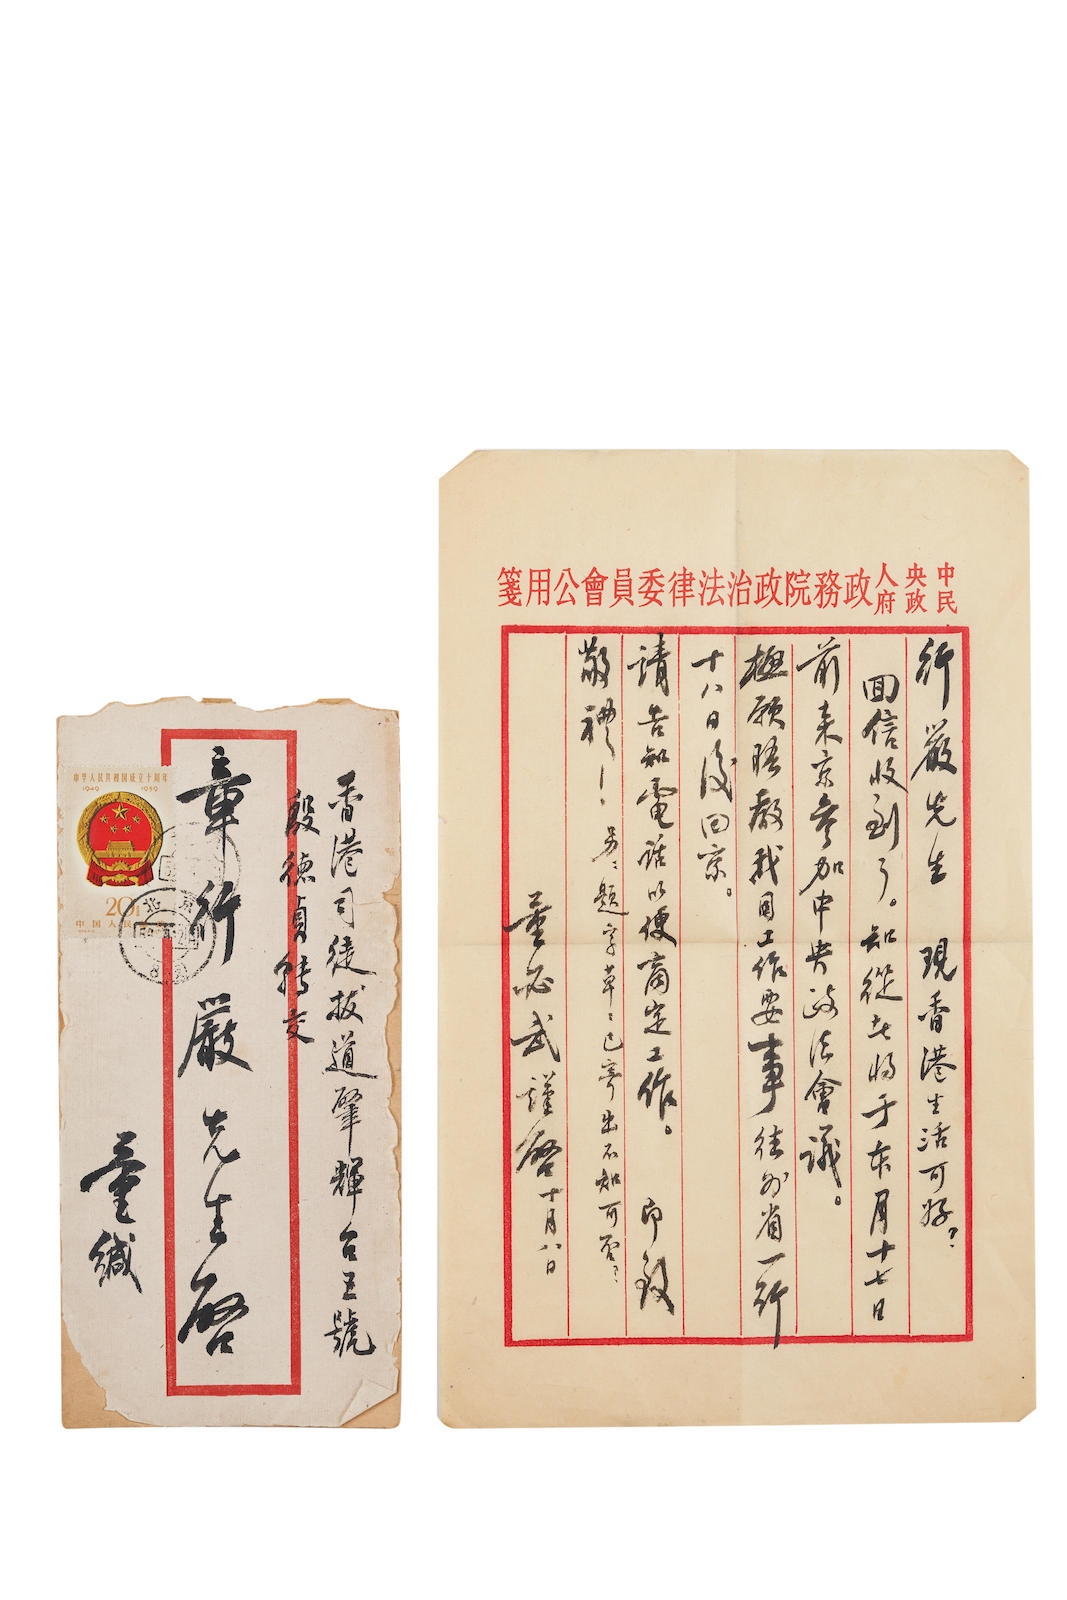 香港司徒拔道肇輝台五號
殷德貞轉交
章行嚴先生啓
董緘
中华人民共和国成立十周年
1949 1959
20
中国人民
北京
中央人民政府政務院政治法律委員會公用箋
行嚴先生 現香港生活可好？
回信收到了。知從者將于本月十七日
前来京參加中央政法會議。
極願晤教我因工作要事往外省一行
十八日後回京。
請告知電話以便商定工作。 即致
敬禮！
另：題字草：已寄出不知可否？
董必武謹啓十月八日